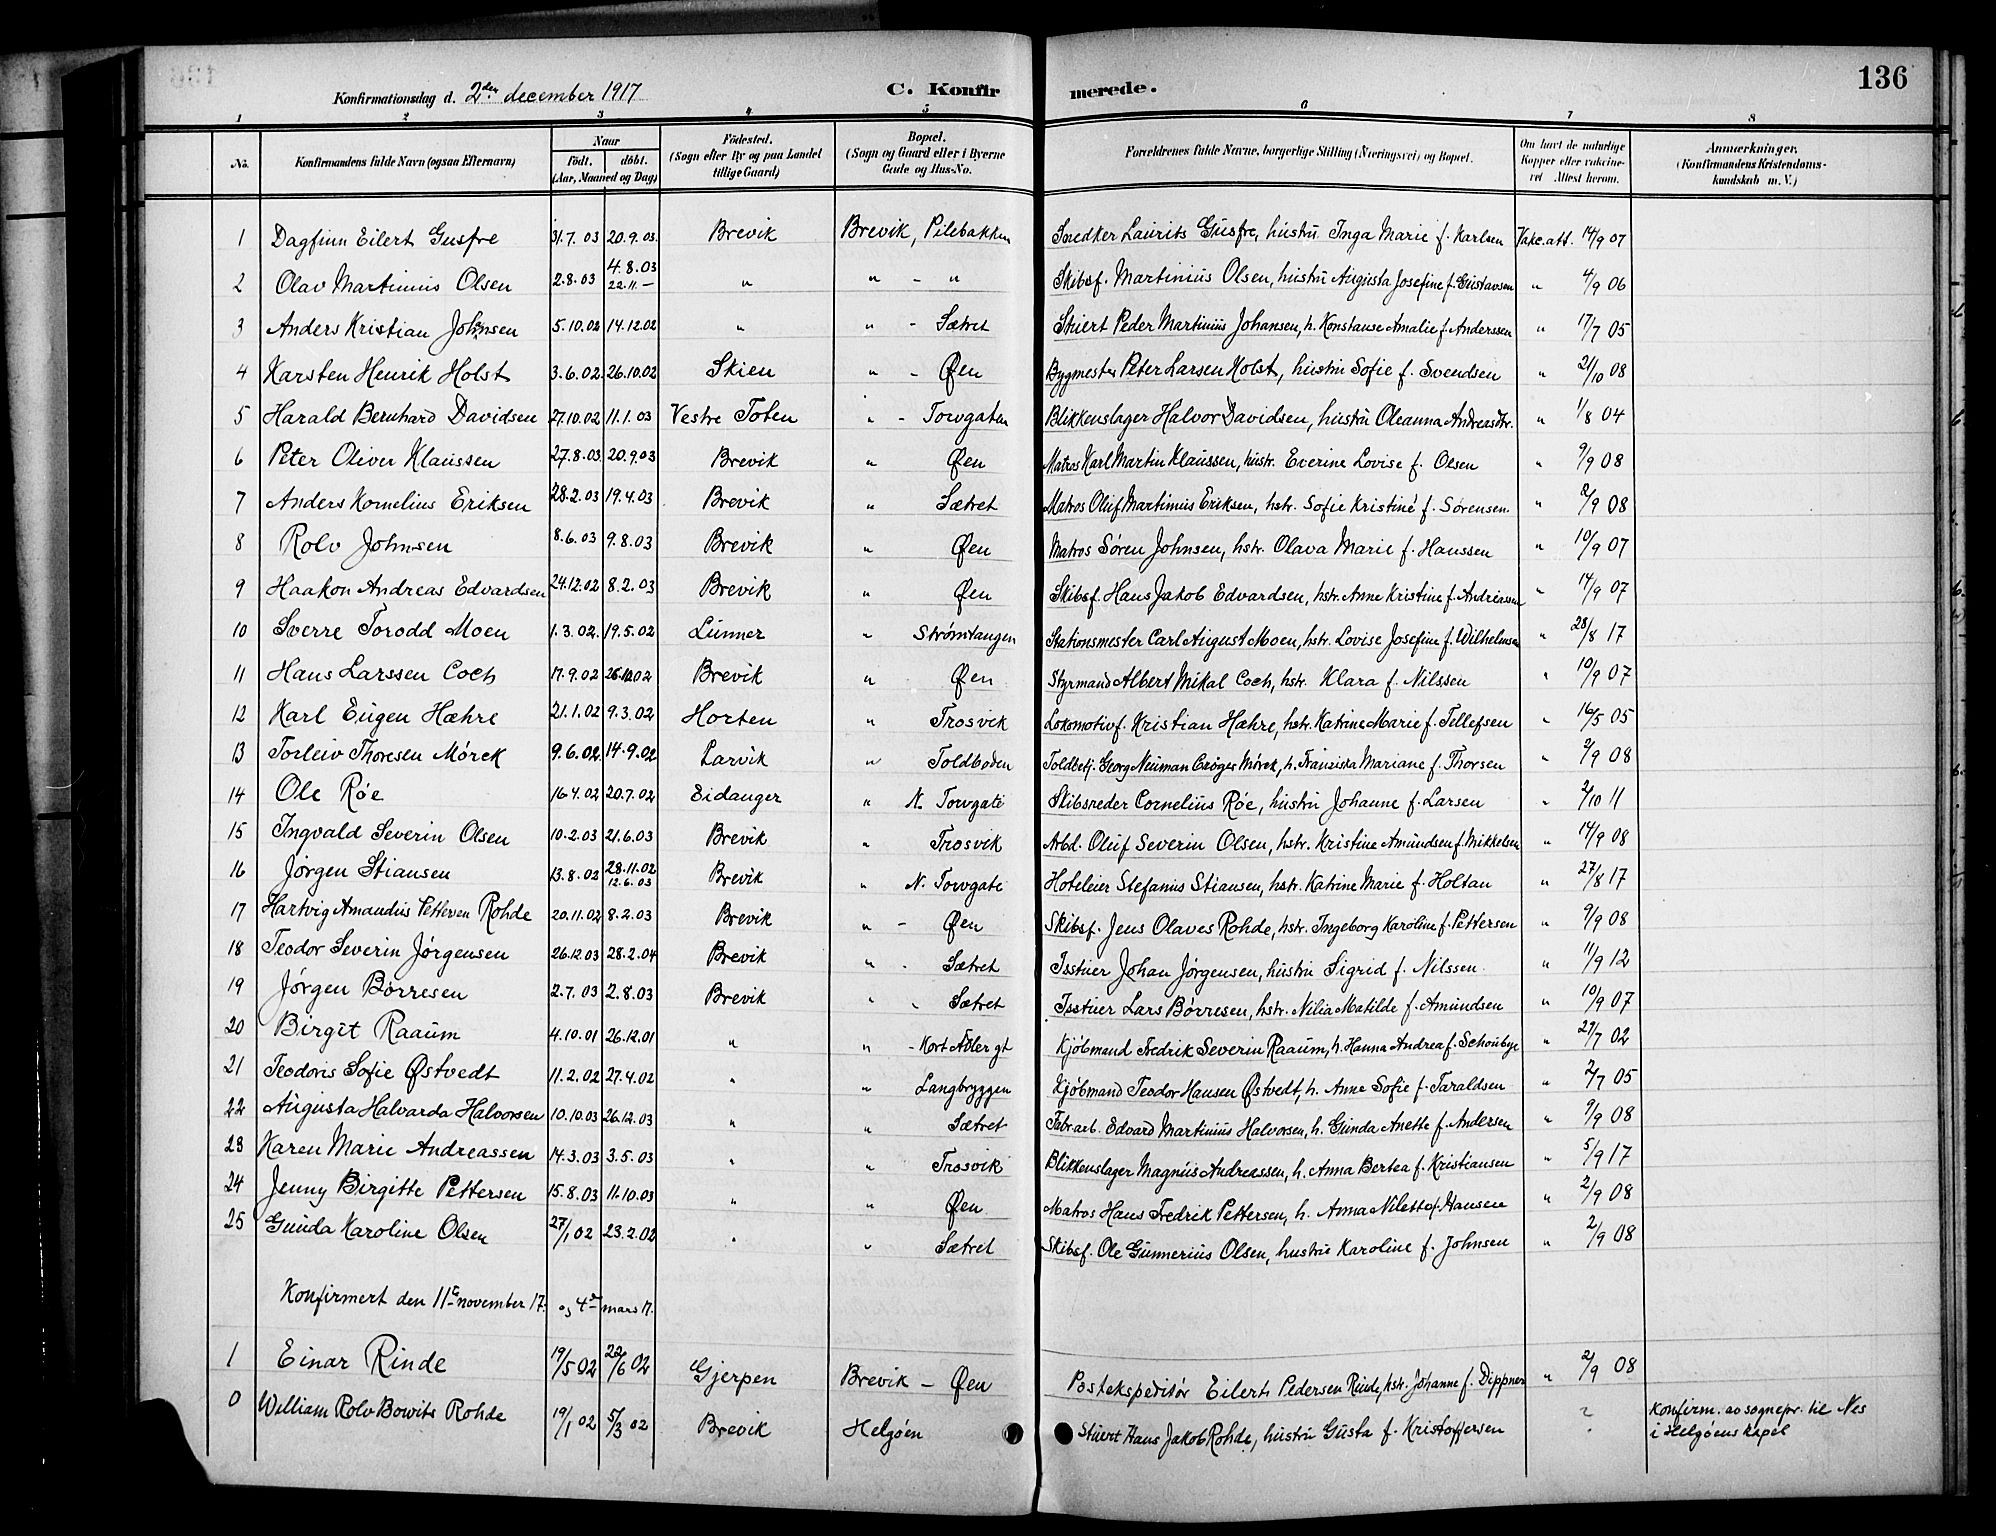 136
Konfirmationsdag d. 2den december 1917 C. Konfirmerede.
1 2 3 4 5 6 7 8
No. Konfirmandens fulde Navn (ogsaa Efternavn) Naar født. døbt. (Aar, Maaned og Dag) Födested. (Sogn efter By og paa Landet tillige Gaard) Bopæl. (Sogn og Gaard eller i Byerne Gade og Hus-No. Forældrenes fulde Navne, borgerlige Stilling (Næringsvei) og Bopæl. Om havt de naturlige Kopper eller vakcineret Attest herom. Anmærkninger. (Konfirmandens Kristendomskundskab m. V.)
1 Dagfinn Eilert Gusfre 31.7.03 20.9.03. Brevik Brevik, Pilebakken Snedker Laurits Gusfre, hustru Inga Marie f. Karlsen Vakc.att. 14/9 07
2 Olav Martinius Olsen 2.8.03 4.8.03 22.11.— " " - " Skibsf. Martinius Olsen, hustru Augusta Josefine f. Gustavsen " 4/9 06
3 Anders Kristian Johnsen 5.10.02 14.12.02 " " - Sætret Stuert Peder Martinius Johansen, h. Konstanse Amalie f. Anderssen " 17/7 05
4 Karsten Henrik Holst 3.6.02. 26.10.02 Skien " - Øen Bygmester Peter Larsen Holst, hustru Sofie f. Svendsen " 21/10 08
5 Harald Bernhard Davidsen 27.10.02 11.1.03 Vestre Toten " - Torvgaten Blikkenslager Halvor Davidsen, hustru Oleanna Andreasdtr. " 1/8 04
6 Peter Oliver Klaussen 27.8.03 20.9.03 Brevik " Øen Matros Karl Martin Klaussen, hustr. Everine Lovise f. Olsen " 9/9 08
7 Anders Kornelius Eriksen 28.2.03 19.4.03 Brevik " Sætret Matros Oluf Martinius Eriksen, hstr. Sofie Kristine f. Sørensen. " 2/9 08
8 Rolv Johnsen 8.6.03 9.8.03 Brevik " Øen Matros Søren Johnsen, hstr. Olava Marie f. Hanssen " 10/9 07
9 Haakon Andreas Edvardsen 24.12.02 8.2.03 Brevik " Øen Skibsf. Hans Jakob Edvardsen, hstr. Anne Kristine f. Andreassen " 14/9 07
10 Sverre Torodd Moen 1.3.02. 19.5.02 Lunner " Strømtangen Stationsmester Carl August Moen, hstr. Lovise Josefine f. Wilhelmsen " 28/8 17
11 Hans Larssen Coch 17.9.02 26.10.02 Brevik " Øen Styrmand Albert Mikal Coch, hstr. Klara f. Nilssen " 10/9 07
12 Karl Eugen Hæhre 21.1.02 9.3.02 Horten " Trosvik Lokomotivf. Kristian Hæhre, hstr. Katrine Marie f. Tellefsen " 16/5 05
13 Torleiv Thoresen Mörck 9.6.02 14.9.02 Larvik " Toldboden Toldbetj. Georg Neuman Mörck, h. Franziska Mariane f. Thorsen " 2/9 08
14 Ole Röe 16.4.02 20.7.02 Eidanger " N. Torvgate Skibsreder Cornelius Röe, hustru Johanne f. Larsen " 2/10 11
15 Ingvald Severin Olsen 10.2.03 21.6.03 Brevik " Trosvik Arbd. Oluf Severin Olsen, hstr. Kristine Amundsen f. Mikkelsen " 14/9 08
16 Jörgen Stiansen 13.8.02 28.11.02 12.6.03 Brevik " N. Torvgate Hoteleier Stefanus Stiansen, hstr. Katrine Marie f. Holtan " 27/8 17
17 Hartvig Amandus Pettersen Rohde 20.11.02 8.2.03 Brevik " - Øen Skibsf. Jens Olaves Rohde, hstr. Ingeborg Karoline f. Pettersen " 9/9 08
18 Teodor Severin Jörgensen 26.12.03 28.2.04 Brevik " - Sætret Isstuer Johan Jörgensen, hustru Sigrid f. Nilssen. " 11/9 12
19 Jörgen Börresen 2.7.03 2.8.03 Brevik " " Sætret Isstuer Lars Börresen, hstr. Nilia Matilde f. Amundsen " 10/9 07
20 Birgit Raaum 4.10.01 26.12.01 " " - Kort Adler gt Kjöbmand Fredrik Severin Raaum, h. Hanna Andrea f. Schoubye " 29/7 02
21 Teodoris Sofie Østvedt 11.2.02 27.4.02 " " Langbryggen Kjöbmand Teodor Hansen Østvedt, h. Anne Sofie f. Taraldsen " 2/7 05
22 Augusta Halvarda Halvorsen 10.10.03 26.12.03 " " Sætret Fabr.arb. Edvard Martinius Halvorsen, h. Gunda Anette f. Andersen " 9/9 08
23 Karen Marie Andreassen 14.3.03 3.5.03 " " Trosvik Blikkenslager Magnus Andreassen, h. Anna Bertea f. Kristiansen " 5/9 17
24 Jenny Birgitte Pettersen 15.8.03 11.10.03 " " Øen Matros Hans Fredrik Pettersen, h. Anna Nilette f. Hansen " 2/9 08
25 Gunda Karoline Olsen 27/1 02 23.2.02 " " Sætret Skibsf. Ole Gunnerius Olsen, hustru Karoline f. Johnsen " 2/9 08
Konfirmert den 11te november 17. og 4de mars 17.
1 Einar Rinde 19/5 02 22/6 02 Gjerpen Brevik - Øen Postekspeditör Eilert Pedersen Rinde, hstr. Johanne f. Dippner " 2/9 08
0 William Rolv Bowits Rohde 19/1 02 5/3 02 Brevik Helgöen Stuert Hans Jakob Rohde, hustru Gusta f. Kristoffersen ? Konfirm. av sognepr. til Nes
i Helgöens kapel